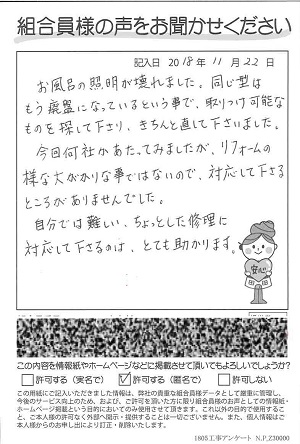 組合員様の声をお聞かせください
記入日 2018年 11月 22日
お風呂の照明が壊れました。同じ型は
もう廃盤になっているという事で、取りつけ可能な
ものを探して下さり、きちんと直して下さいました。
今回何社かあたってみましたが、リフォームの
様な大がかりな事ではないので、対応して下さる
ところがありませんでした。
自分では難しい、ちょっとした修理に
対応して下さるのは、とても助かります。
安心
この内容を情報紙やホームページなどに掲載させて頂いてもよろしいでしょうか?
許可する(実名で) ✓許可する(匿名で) 許可しない
この用紙にご記入いただきました情報は、弊社の貴重な組合員様データとして厳重に管理し、
今後のサービス向上のため、および、ご許可を頂いた方に限り組合員様のお声としての情報紙・
ホームページ掲載という目的においてのみ使用させて頂きます。これ以外の目的で使用する
こと、ご本人様の許可なく外部へ開示・提供することは一切ございません。また、個人情報は本
人様からのお申し出により訂正・削除いたします。
1805工事アンケート N.P_Z3000